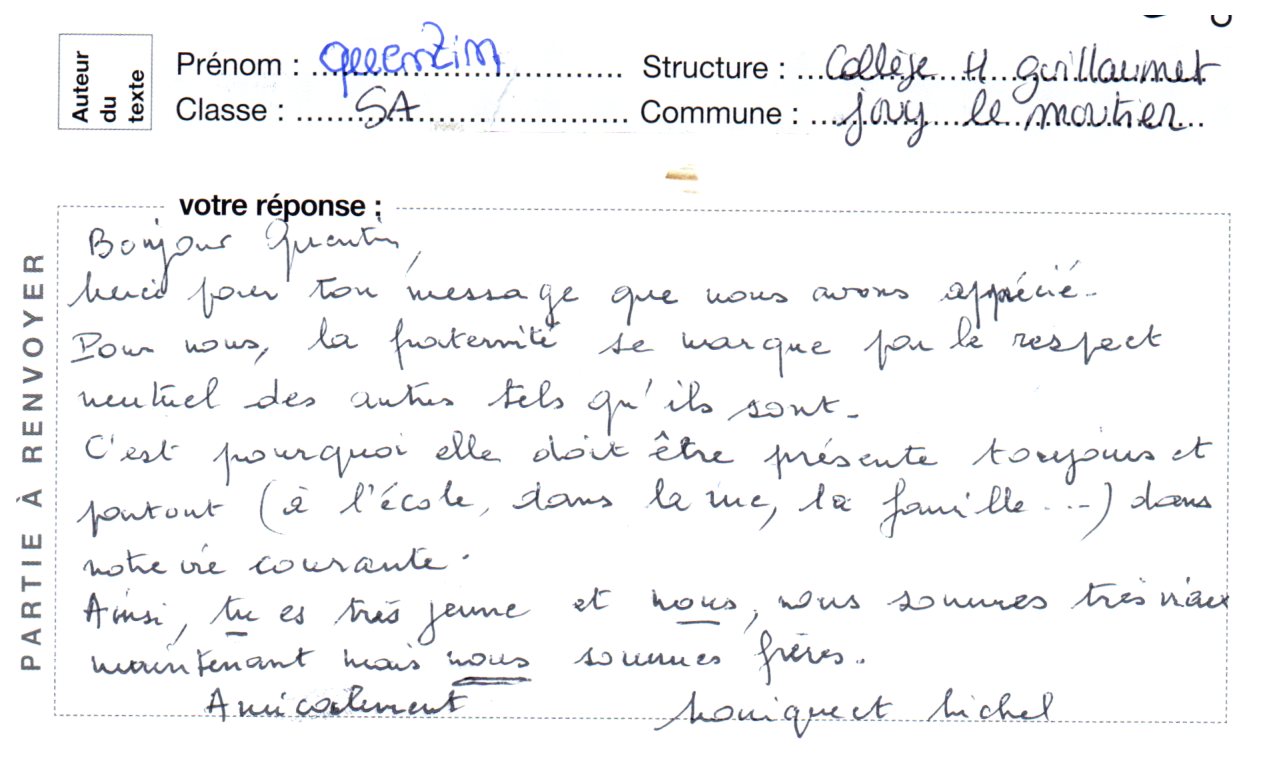 Auteur du texte
Prénom : Quentin Structure : Collèje H guillaumet
Classe : 5A Commune : jouy le moutier
votre réponse :
PARTIE À RENVOYER
Bonjour Quentin,
Merci pour ton message que nous avons apprécié.
Pour nous, la fraternité se marque par le respect
mutuel des autres tels qu'ils sont.
C'est pourquoi elle doit être présente toujours et
partout (à l'école, dans la rue, la famille...) dans
notre vie courante.
Ainsi, tu es très jeune et nous, nous sommes très vieux
maintenant mais nous sommes frères.
Amicalement Monique et Michel